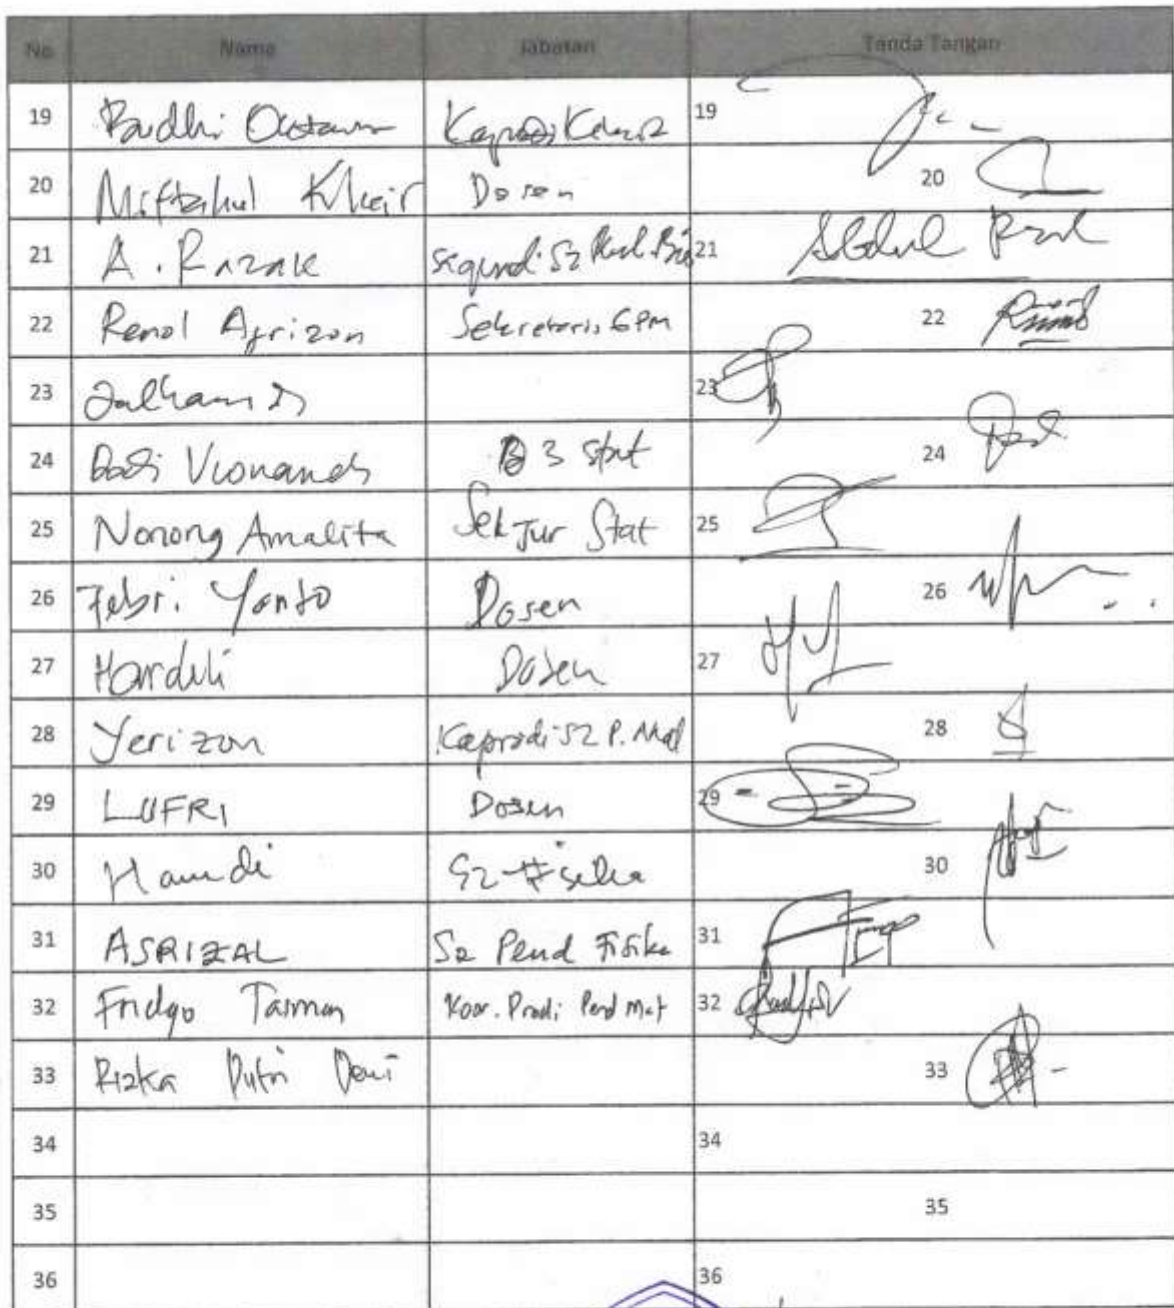 No Nama Jabatan Tanda Tangan
19 Budhi Oktavia Kaprodi Kimia 19
20 Miftahul Khair Dosen 20
21 A. Razak 21 Abdul Razak
22 Renol Afrizon Sekretaris GPM 22
23 23
24 Dodi Vionanda D3 Stat 24
25 Nonong Amalita Sek Jur Stat 25
26 Febri Yanto Dosen 26
27 Hardeli Dosen 27
28 Yerizon Kaprodi S2 P. Mat 28
29 LUFRI Dosen 29
30 Hamdi S2 Fisika 30
31 ASRIZAL S2 Pend Fisika 31
32 Fridgo Tasman Koor. Prodi Pend Mat 32
33 Rizka Putri Dewi 33
34 34
35 35
36 36